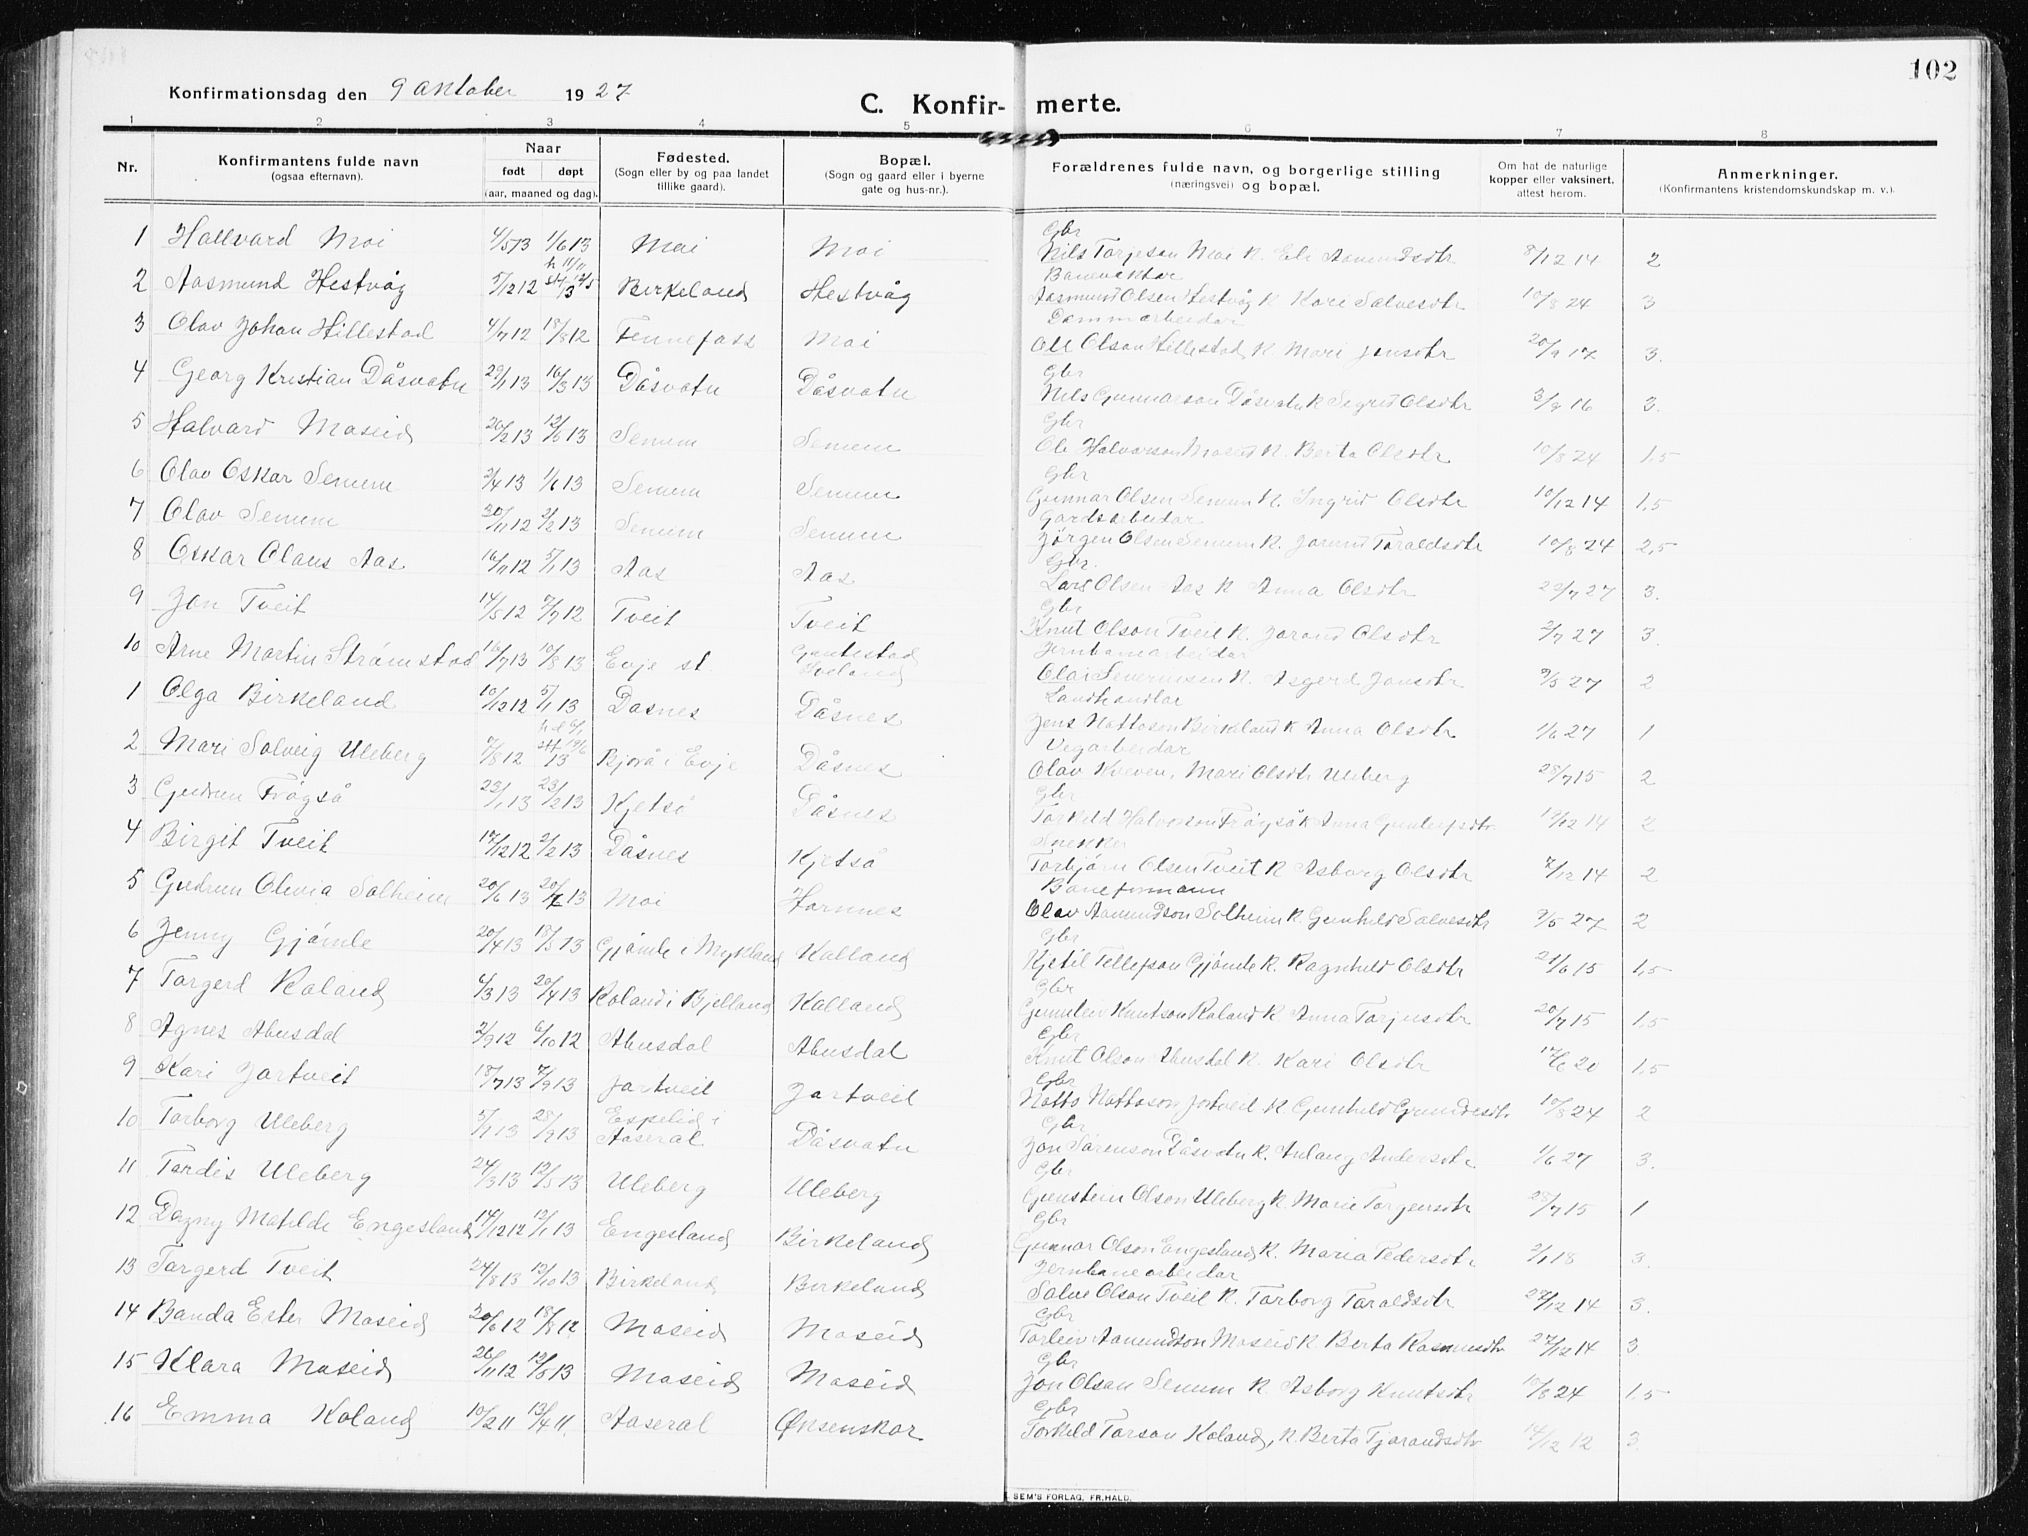 102
Konfirmationsdag den 9 oktober 1927
C. Konfir- merte.
1 2 3 4 5 6 7 8
Nr.
Konfirmantens fulde navn
(ogsaa efternavn).
Naar
født døpt
(aar, maaned og dag).
Fødested.
(Sogn eller by og paa landet
tillike gaard).
Bopæl.
(Sogn og gaard eller i byerne
gate og hus-nr.).
Forældrenes fulde navn, og borgerlige stilling
(næringsvei) og bopæl.
Om hat de naturlige
kopper eller vaksinert,
attest herom.
Anmerkninger.
(Konfirmantens kristendomskundskap m. v.).
Gbr
1 Hallvard Moi 4/5 13 1/6 13 Moi Moi Nils Torjeson Moi K. Aamundsdtr 8/12 14 2
Banevaktar
2 Aasmund Hestvåg 5/12 12 Birkeland Hestvåg Aasmund Olsen Hestvåg K Kari Salvesdtr 10/8 24 3
Dammarbeidar
3 Olav Johan Hillestad 4/7 12 18/8 12 Fennefoss Moi Ole Olson Hillestad K. Mari Jensdtr 20/9 17 3.
Gbr
4 Georg Kristian Dåsvatn 29/1 13 16/3 13 Dåsvatn Dåsvatn Nils Gunnarson Dåsvatn K Sigrid Olsdtr 3/8 16 3.
Gbr
5 Halvard Moseid 26/2 13 12/5 13 Senum Senum Ole Halvorson Moseid K. Berta Olsdtr 10/8 24 1,5
Gbr
6 Olav Oskar Senum 2/4 13 1/6 13 Senum Senum Gunnar Olsen Senum K. Ingrid Olsdtr 10/12 14 1,5
Gardsarbeidar
7 Olav Senum 30/11 12 2/2 13 Senum Senum Jørgen Olsen Senum K. Jorund Taraldsdtr 10/8 24 2,5
Gbr.
8 Oskar Olaus Aas 16/11 12 5/1 13 Aas Aas Lars Olsen Aas K Anna Olsdtr 22/7 27 3.
Gbr
9 Jon Tveit 14/5 12 7/7 12 Tveit Tveit Knut Olson Tveit K. Jorand Olsdtr 2/7 27 3.
Jernbanearbeidar
10 Arne Martin Strømstad 16/7 13 10/8 13 Evje st. Olai Severinsen K. Asgerd Jonsdtr 9/5 27 2
Landhandlar
1 Olga Birkeland 10/12 12 5/1 13 Dåsnes Dåsnes Jens Nattoson Birkeland K Anna Olsdtr 1/6 27 1
Vegarbeidar
2 Mari Solveig Uleberg 7/8 12 Bjorå i Evje Dåsnes Olav Kveven, Mari Olsdtr Uleberg 28/7 15 2
Gbr
3 Gudrun Frøgså 23/1 13 23/2 13 Kjetså Dåsnes Torkild Halvorson Frøgså K Anna Gunleifsdtr 12/12 14 2
Snekker
4 Birgit Tveit 17/12 12 2/2 13 Dåsnes Kjetså Torbjørn Olsen Tveit K Asborg Olsdtr 7/12 14 2
Baneformann
5 Gudrun Olivia Solheim 20/6 13 20/7 13 Moi Hornnes Olav Aamundson Solheim K. Gunhild Salvesdtr 9/5 27 2
Gbr
6 Jenny Gjømle 20/4 13 18/5 13 Gjømle i Mykland Kalland Kjetil Tellefson Gjømle K. Ragnhild Olsdtr 21/6 15 1,5
Gbr
7 Torgerd Roland 4/3 13 20/4 13 Roland i Bjelland Kalland Gunnleiv Knutson Roland K Anna Torjusdtr 20/7 15 1,5
Gbr
8 Agnes Abusdal 2/9 12 6/10 12 Abusdal Abusdal Knut Olson Abusdal K. Kari Olsdtr 17/6 20 1,5
Gbr
9 Kari Jortveit 18/7 13 7/9 13 Jortveit Jortveit Natto Nattoson Jortveit K Gunhild Grundesdtr 10/8 24 2
Gbr
10 Torborg Uleberg 5/9 13 28/9 13 Espelid i Aaseral Dåsvatn Jon Sørenson Dåsvatn K. Aslaug Andersdtr 1/6 27 3.
Gbr
11 Tordis Uleberg 24/3 13 12/5 13 Uleberg Uleberg Gunstein Olson Uleberg K. Marie Torgersdtr 28/7 15 1
Gbr
12 Dagny Matilde Engesland 14/12 12 12/1 13 Engesland Birkeland Gunnar Olson Engesland K. Maria Pedersdtr 2/1 18 3.
Jernbanearbeidar
13 Torgerd Tveit 24/8 13 12/10 13 Birkeland Birkeland Salve Olson Tveit K. Torborg Taraldsdtr 27/12 14 3.
Gbr
14 Banda Ester Moseid 20/6 12 18/8 12 Moseid Moseid Torleiv Aamundson Moseid K. Berta Rasmusdtr 27/12 14 3.
Gbr
15 Klara Moseid 26/11 12 12/5 13 Moseid Moseid Jon Olson Senum K. Asborg Knutsdtr 10/8 24 1,5
Gbr
16 Emma Koland 10/2 11 13/4 11. Aaseral Øksenskar Torkild Tarson Koland, K. Berta Tjorandsdtr 14/12 12 3.
SEM'S FORLAG, FR.HALD.